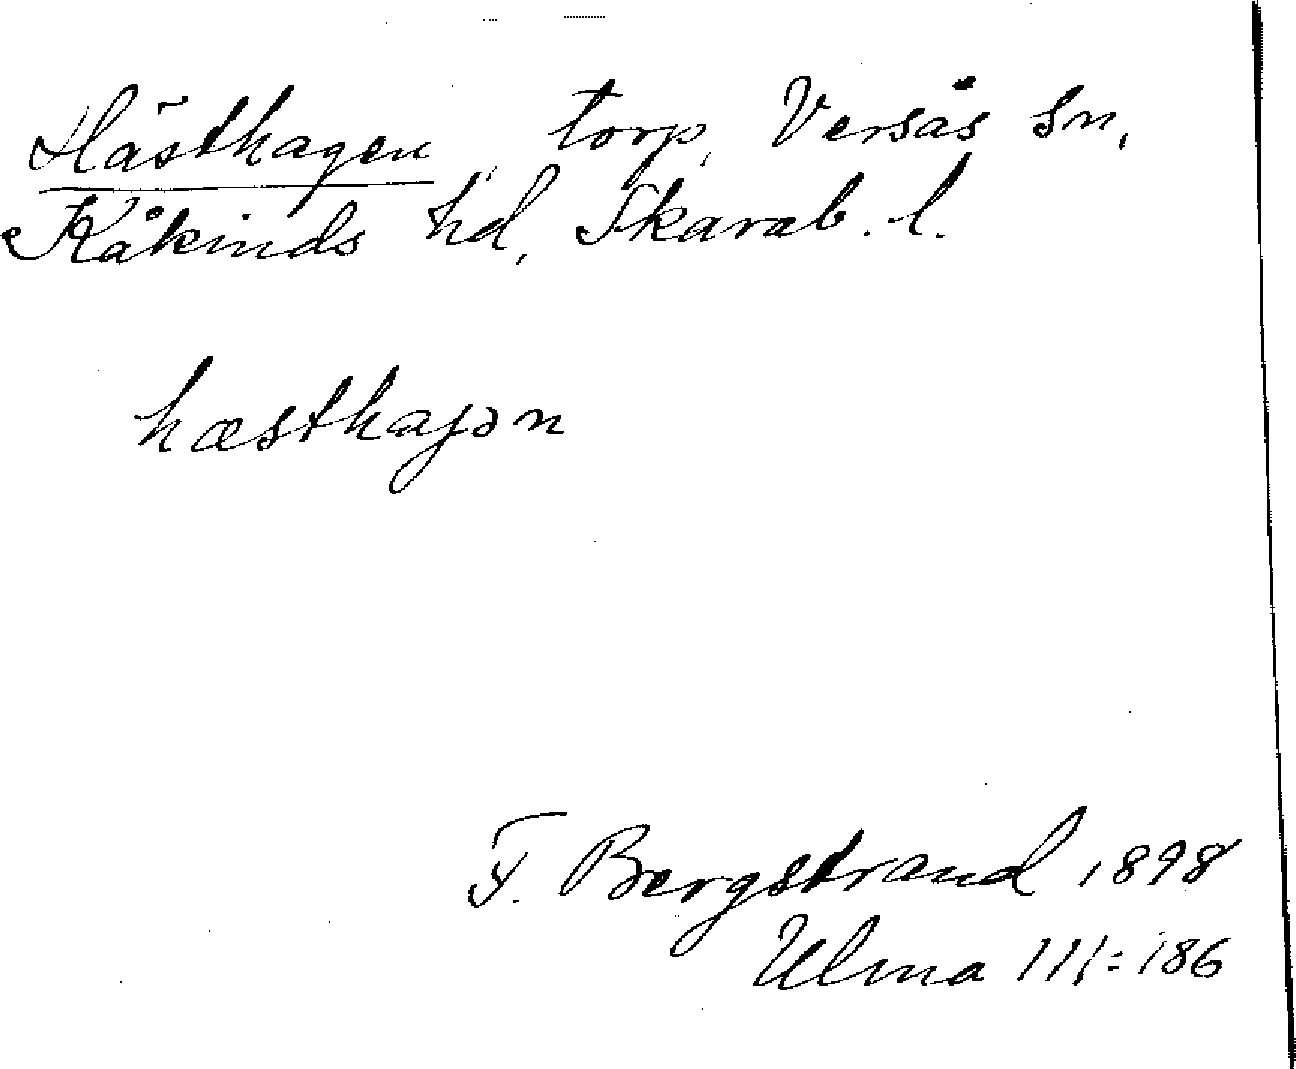 Hästhagen, torp, Versås sn,
Kåkinds hd, Skarab. l.
hæsthajən
F. Bergstrand 1898
Ulma 111:186